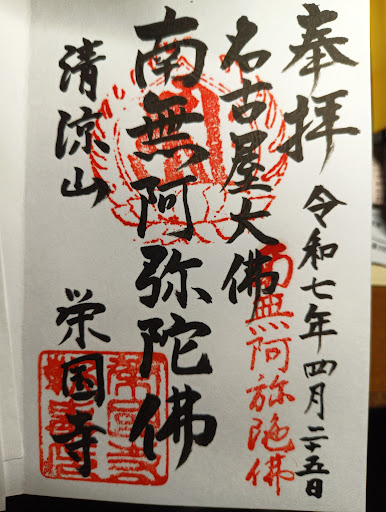 奉拝
令和七年四月二十五日
南無阿弥陀佛
名古屋大佛
南無阿弥陀佛
清涼山
栄国寺